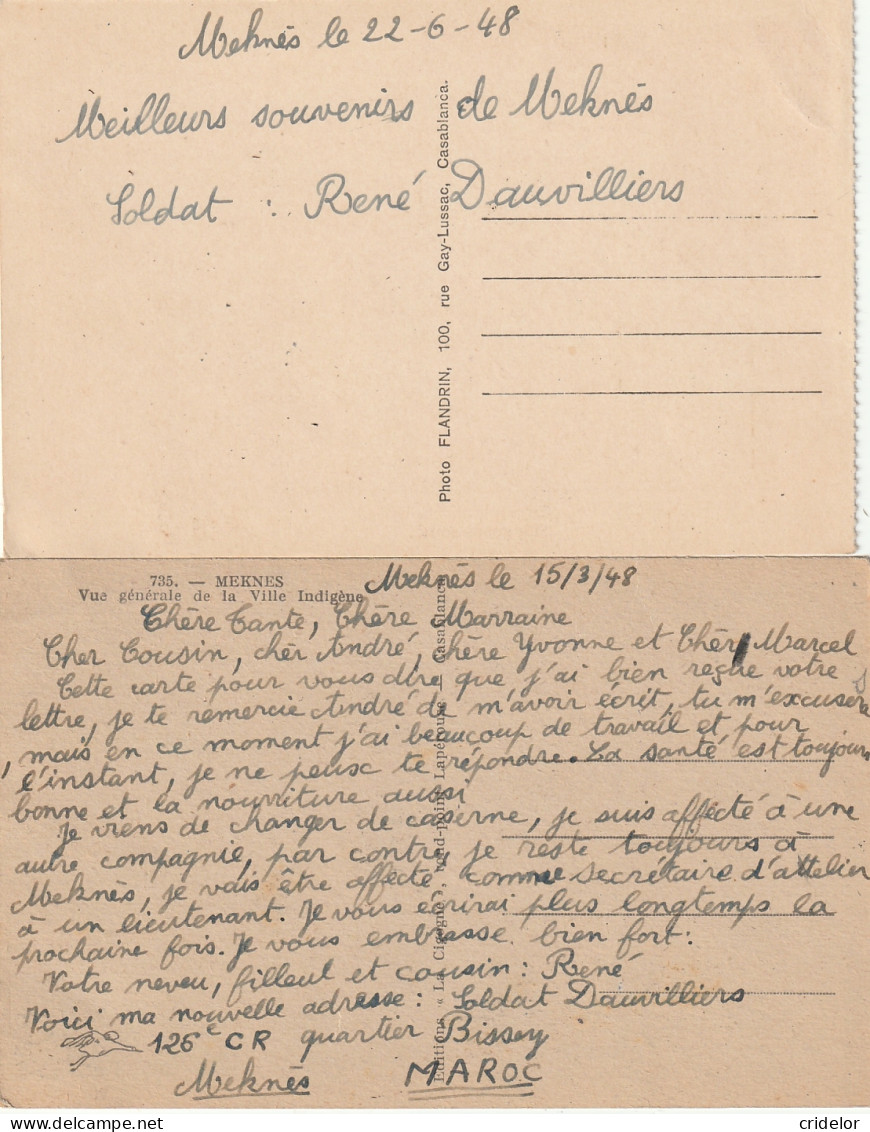 Meknès le 22-6-48
Meilleurs souvenirs de Meknès
Soldat : René Dauvilliers
Photo FLANDRIN, 100, rue Gay-Lussac, Casablanca.
735. — MEKNES
Vue générale de la Ville Indigène
Meknès le 15/3/48
Chère Tante, Chère Marraine
Cher Cousin, chèr André, Chère Yvonne et Chèr Marcel
Cette carte pour vous dire que j'ai bien reçue votre
lettre, je te remercie André de m'avoir écrit, tu m'excusera
, mais en ce moment j'ai beaucoup de travail et pour
l'instant, je ne peux te répondre. La santé est toujours
bonne et la nourriture aussi
Je viens de changer de caserne, je suis affecté à une
autre compagnie, par contre, je reste toujours à
Meknès, je vais être affecté comme secrétaire d'attelier
à un lieutenant. Je vous écrirai plus longtemps la
prochaine fois. Je vous embrasse bien fort :
Votre neveu, filleul et cousin : René
Voici ma nouvelle adresse : Soldat Dauvilliers
126e CR quartier Bissey
Meknès MAROC
Editions « La Cigogne », rond-point Lapérouse — Casablanca
cridelor